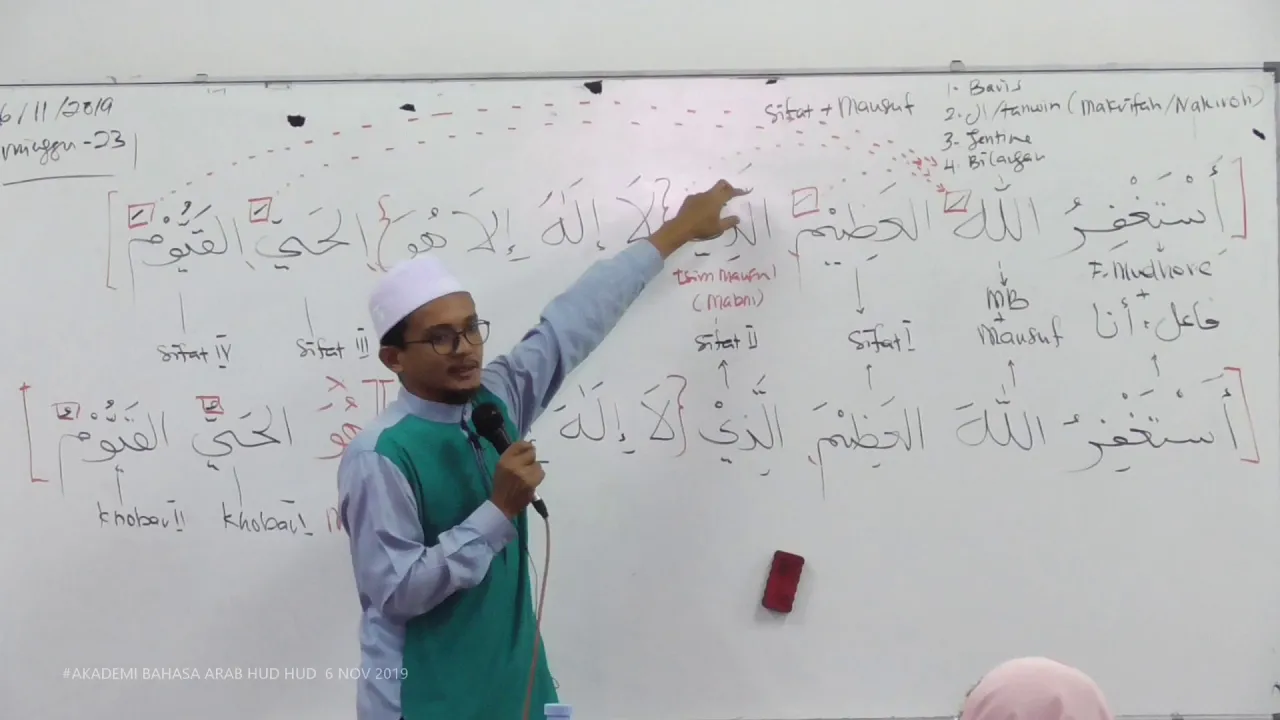 6/11/2019
minggu - 23
Sifat + Mausuf
1. Baris
2. ال/tanwin (Makrifah/Nakiroh)
3. Jentina
4. Bilangan
أَسْتَغْفِرُ اللهَ العَظِيْمَ الَّذِي { لَا إِلَهَ إِلَّا هُوَ } الحَيَّ القَيُّوْمَ
F. Mudhore'
+
فاعل: أنا
MB
+
Mausuf
Sifat I
Isim Mausul
(Mabni)
Sifat II
Sifat III
Sifat IV
أَسْتَغْفِرُ اللهَ العَظِيْمَ الَّذِيْ { لَا إِلَهَ هو الحَيُّ القَيُّوْمُ
Khobar I
Khobar II
#AKADEMI BAHASA ARAB HUD HUD 6 NOV 2019